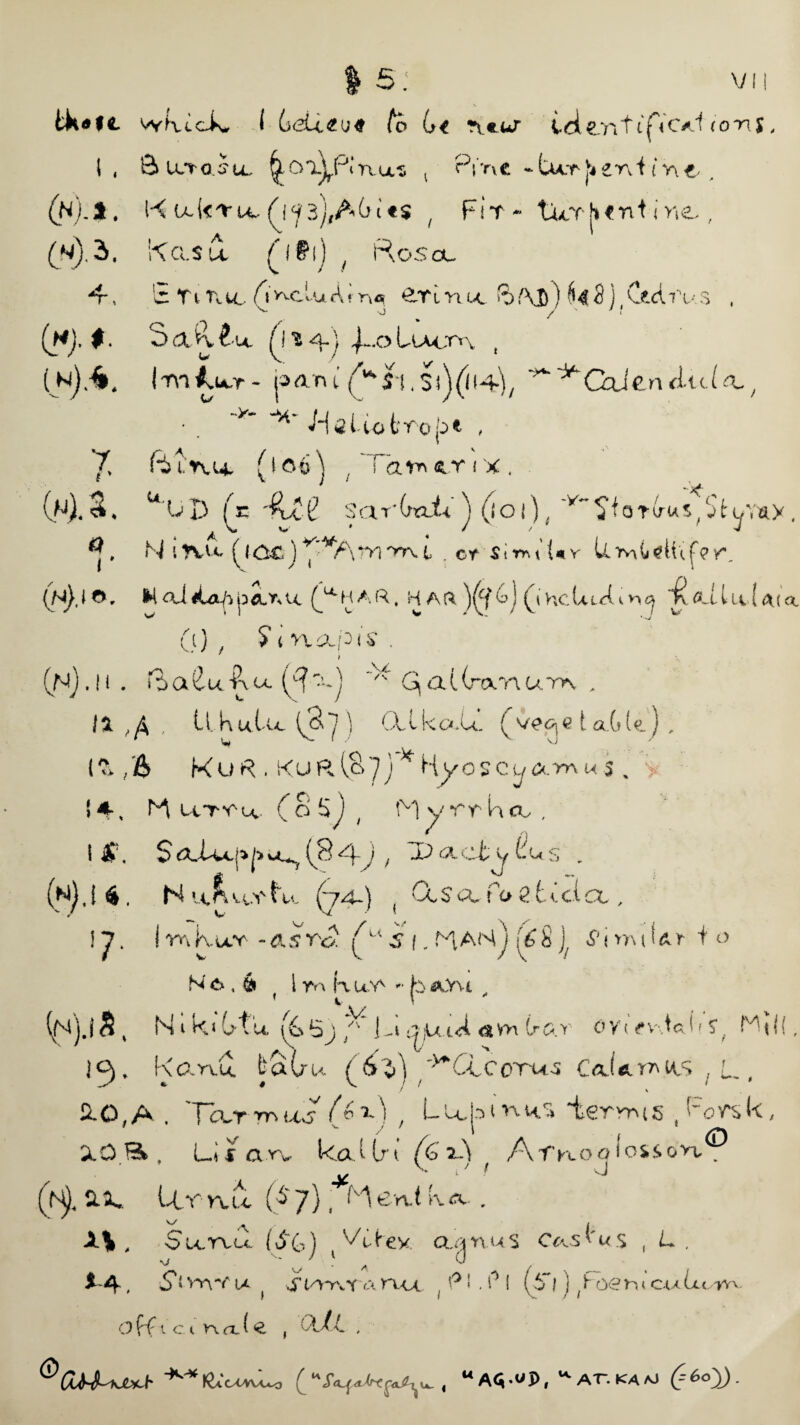 § 5. VII
those which I believe to be new identifications.
1. Burāšu (207), Pinus, Pine-turpentine.
(N).2. Kukru (193), Abies, Fir-turpentine,
(N).3. Kasû (181), Rosa
4. Erinu, (including erinu BAD) (148), Cedrus,
(N). Saḫlu (124) Lolium,
(N). Imḫur-pani (ᵘŠI.ŠI)(114), ** Calendula,
** Heliotrope,
7. Bînu (106), Tamarix.
(N).8. ᵘUD (= ḫîl šarbati) (101), *Storbus, Styrax,
9. Ninû (100), *Ammi, or similar Umbellifer.
(N).10. Ḫaldappânu (ᵘḪAR.ḪAR)(96) (including ḫallulaia
(?), Sinapis.
(N).11. Baluḫu (92) * Galbanum,
12,A. Uḫulu (87) Alkali (vegetable),
12,B KUR.KUR(87)* Hyoscyamus,
14, Murru (85), Myrrha,
15. Saluppu, (84), Dactylus.
(N).16. Nuḫurtu (74), Asa foetida,
17. Imḫur-ašrâ (ᵘŠI.MAN)(68), Similar to
No. 6, Imḫur-pani,
(N).18, Nikibtu (65), * Liquidambar orientalis, Mill,
19. Kanû ṭâbu (63), *Acorus Calamus, L.,
20,A. Tarmuš (62), Lupinus termis, Forsk,
20.B, Lišan kalbi (62), Arnoglosson①.
(N). 22. Urnû (57), *Mentha.
23. Šunû (56), Vitex agnus Castus, L.
24. Simru, šimranu, PI.PI (51), Foeniculum
officinale, All.
① **Ricinus (ᵘ , ᵘAŠ.UD, ᵘAT.KAM (-60)).